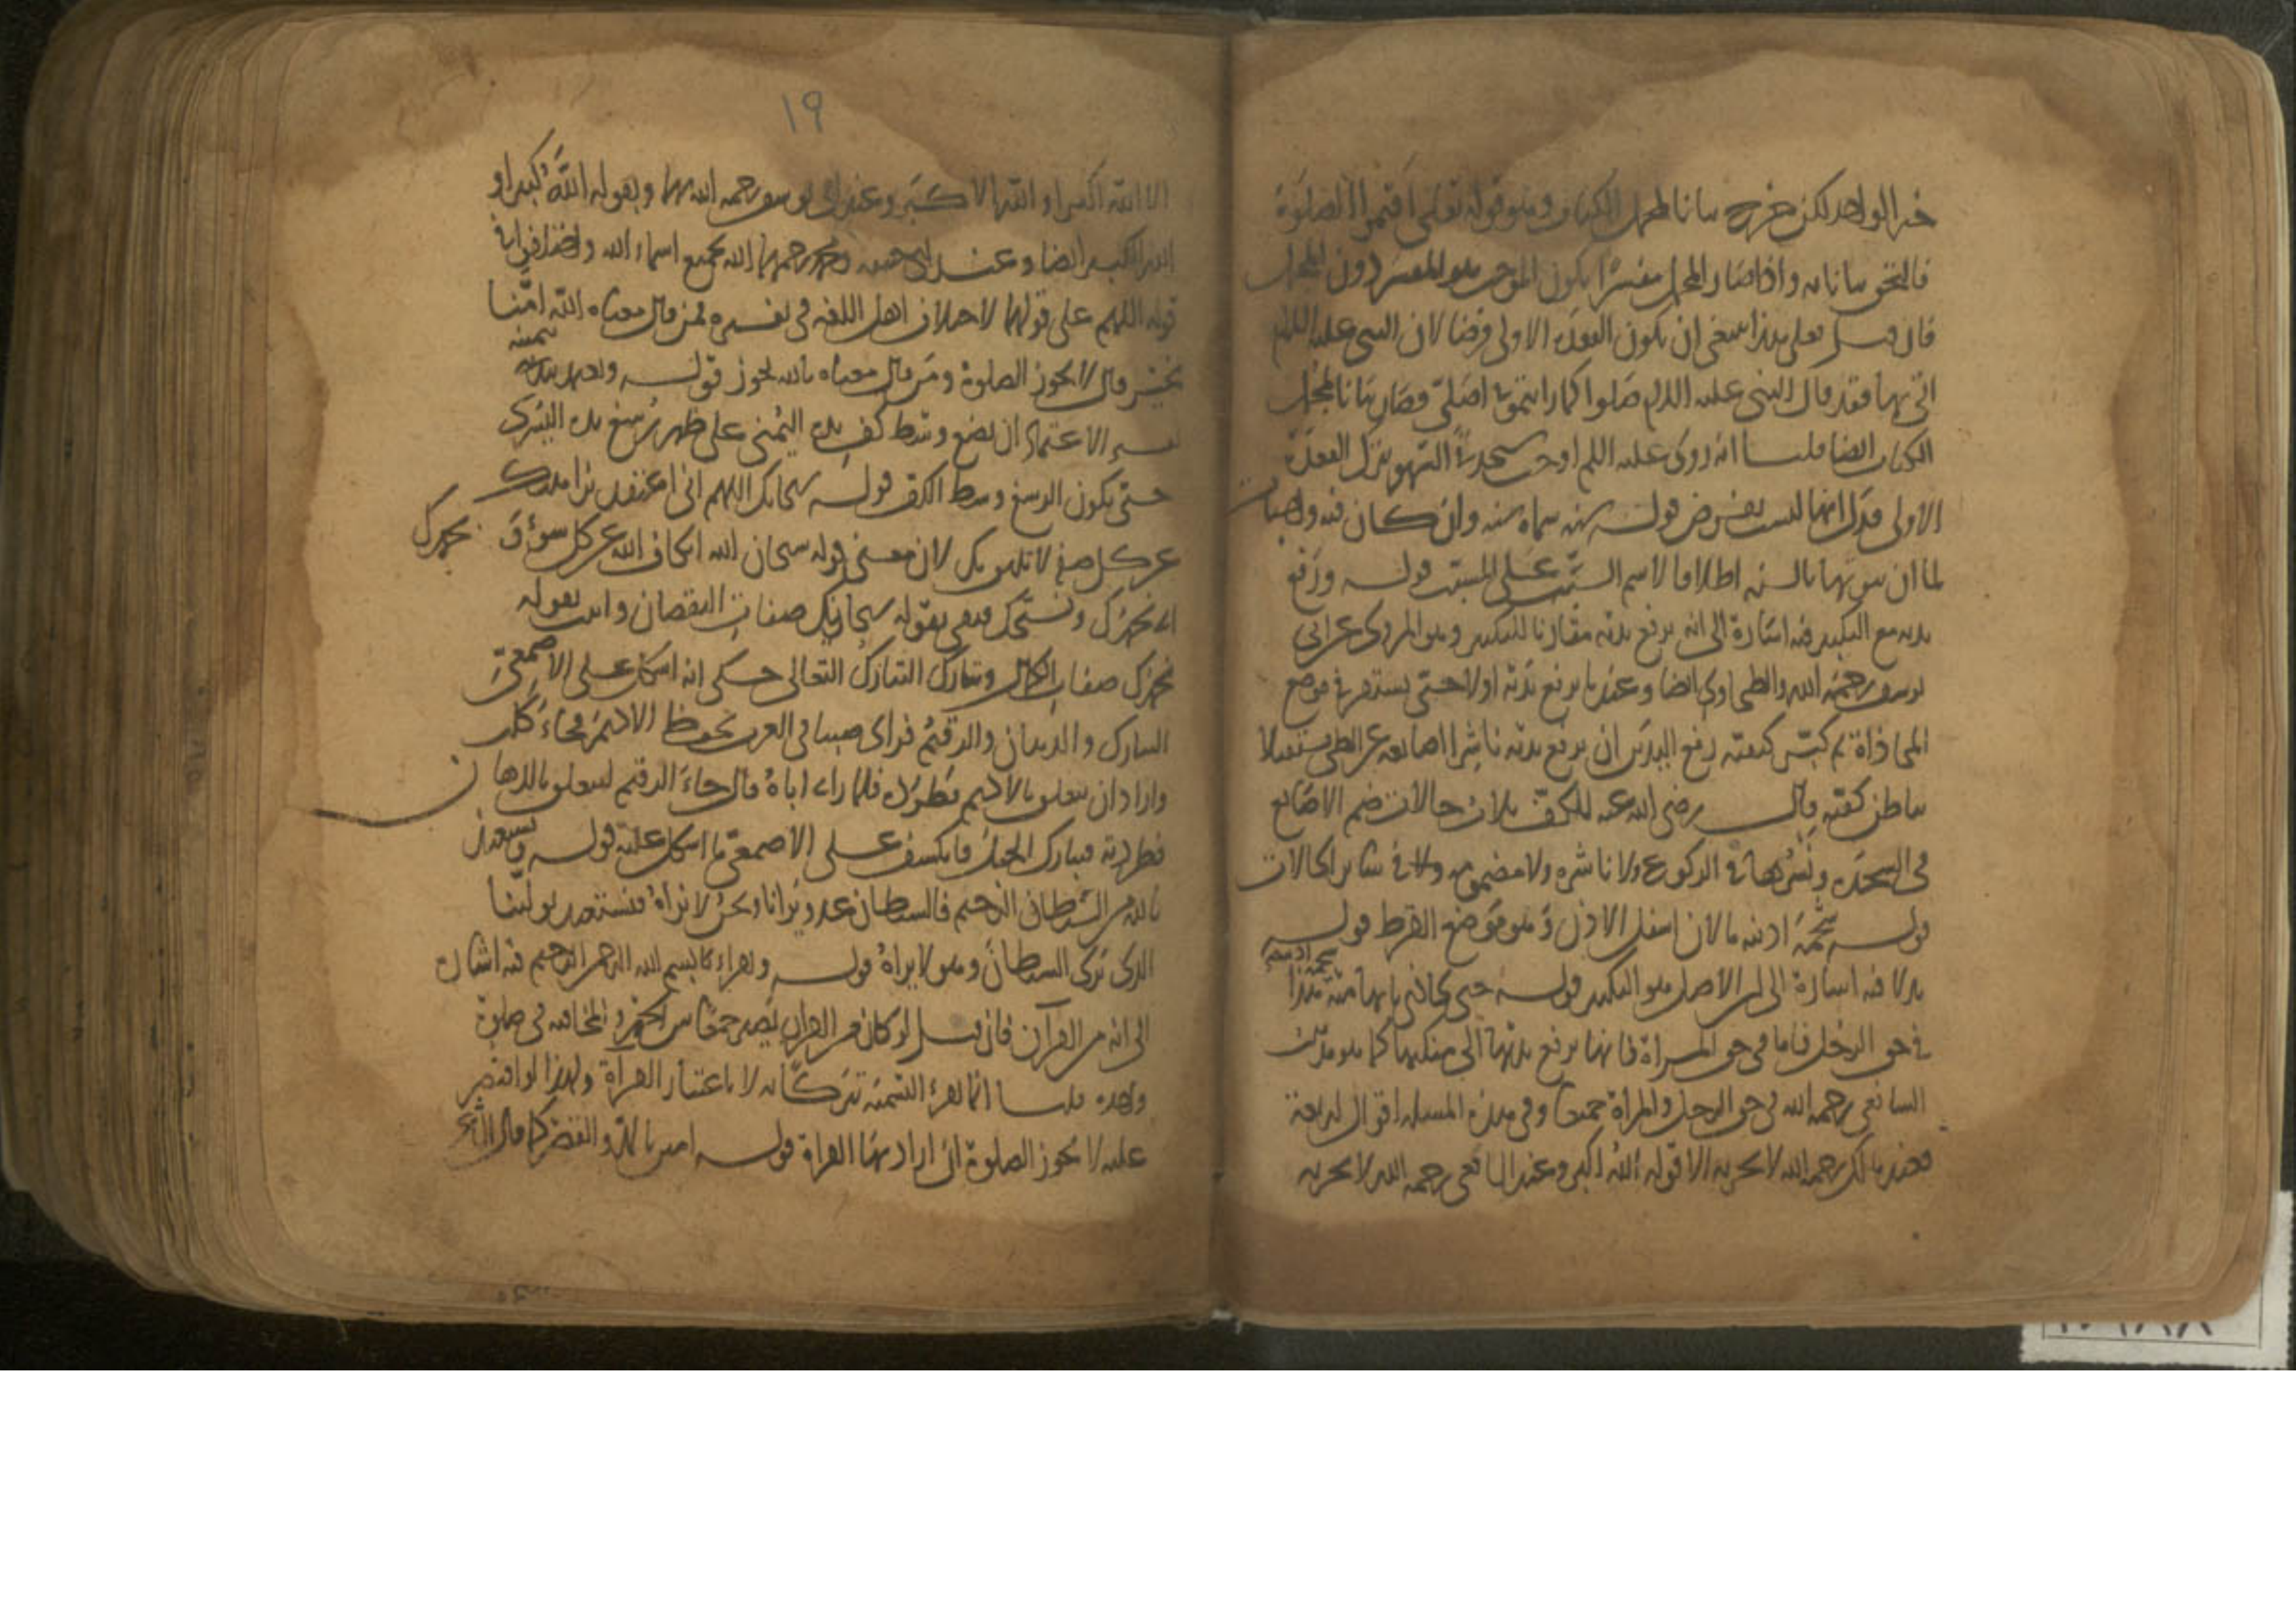 خبر الواحد لكن خرج بيانا لمجمل الكتاب وهو قوله تعالى اقيموا الصلوة
فالتحق بيانا به واذا صار المجمل مفسرا يكون الموجب هو المفسر دون المجمل
فان قيل فعلى هذا ينبغي ان يكون القعدة الاولى فرضا لان النبي عليه السلم
اتى بها فقد قال النبي عليه السلم صلوا كما رايتموني اصلي فصار بيانا لمجمل
الكتاب ايضا قلنا انه روى عليه السلم اوجب سجدتي السهو بترك القعدة
الاولى فدل انها ليست بفرض قوله سنة سماه سنة وان كان فيه واجبات
لما ان ثبوتها بالسنة اطلاقا لاسم السبب على المسبب قوله ورفع
يديه مع التكبير فيه اشارة الى انه يرفع يديه مقارنا للتكبير وهو المروى عن ابي
يوسف رحمه الله والطحاوى ايضا وعندنا يرفع يديه اولا حتى يستقر في موضع
المحاذاة ثم كبر كيفية رفع اليدين ان يرفع يديه ناشرا اصابعه عن الطي مستقبلا
بباطن كفيه قال رضى الله عنه للكف ثلاث حالات ضم الاصابع
في السجدة ونشرها في الركوع ولا ناشرة ولا مضمومة في سائر الحالات
قوله شحمة اذنيه مالان اسفل الاذن وهو موضع القرط قوله
شحمة اذنيه
يديه فيه اشارة الى ان الاصل هو التكبير قوله حتى يحاذى بابهاميه هذا
في حق الرجل فاما في حق المراة فانها ترفع يديها الى منكبيها كما هو مذهب
الشافعى رحمه الله في حق الرجل والمراة جميعا وفي هذه المسئلة اقوال اربعة
فعند مالك رحمه الله لا يجزيه الا قوله الله اكبر وعند الشافعى رحمه الله لا يجزيه
١٩
الا الله اكبر او الله الاكبر وعند ابي يوسف رحمه الله بهما وبقوله الله كبير او
الله الكبير ايضا وعند ابي حنيفة ومحمد رحمهما الله بجميع اسماء الله واختلفوا في
قوله اللهم على قولهما لاختلاف اهل اللغة في تفسيره فمن قال معناه الله امنا
بخير قال لا يجوز الصلوة ومن قال معناه يا الله يجوز قوله ويعتمد بيده
يمينه
تفسير الاعتماد ان يضع وسط كف يده اليمنى على ظهر رسغ يده اليسرى
حتى يكون الرسغ وسط الكف قوله سبحانك اللهم اني اعتقد نزاهتك
عن كل صفة لا تليق بك لان معنى قوله سبحان الله اى كاف الله عن كل سوء وبحمدك
اى نحمدك وتسبيحك فنفى بقوله سبحانك صفات النقصان واثبت بقوله
بحمدك صفات الكمال وتبارك التبارك التعالى حكى انه اشكل على الاصمعى
التبارك والدهان والرقيم فراى صبيا في العرب يحفظ الاديم فجاء كلب
واراد ان يتعلق بالاديم فطرده فلما راى اباه قال جاء الرقيم ليتعلق بالدهان
فطردته فتبارك الجبل فانكشف على الاصمعى ما اشكل عليه قوله ويستعيذ
بالله من الشيطان الرجيم فالشيطان عدو يرانا ونحن لا نراه فنستعيذ بولينا
الذى يرى الشيطان وهو لا يراه قوله وقراءة بسم الله الرحمن الرحيم فيه اشارة
الى انه من القرآن فان قيل لو كان من القران يصير جمعا بين الجهر والمخافتة في صلوة
واحدة قلنا انما يقرا التسمية تبركا به لا باعتبار القراة ولهذا لو اقتصر
عليه لا يجوز الصلوة ان اراد بها القراة قوله امين بالمد والقصر كما قال الشاعر